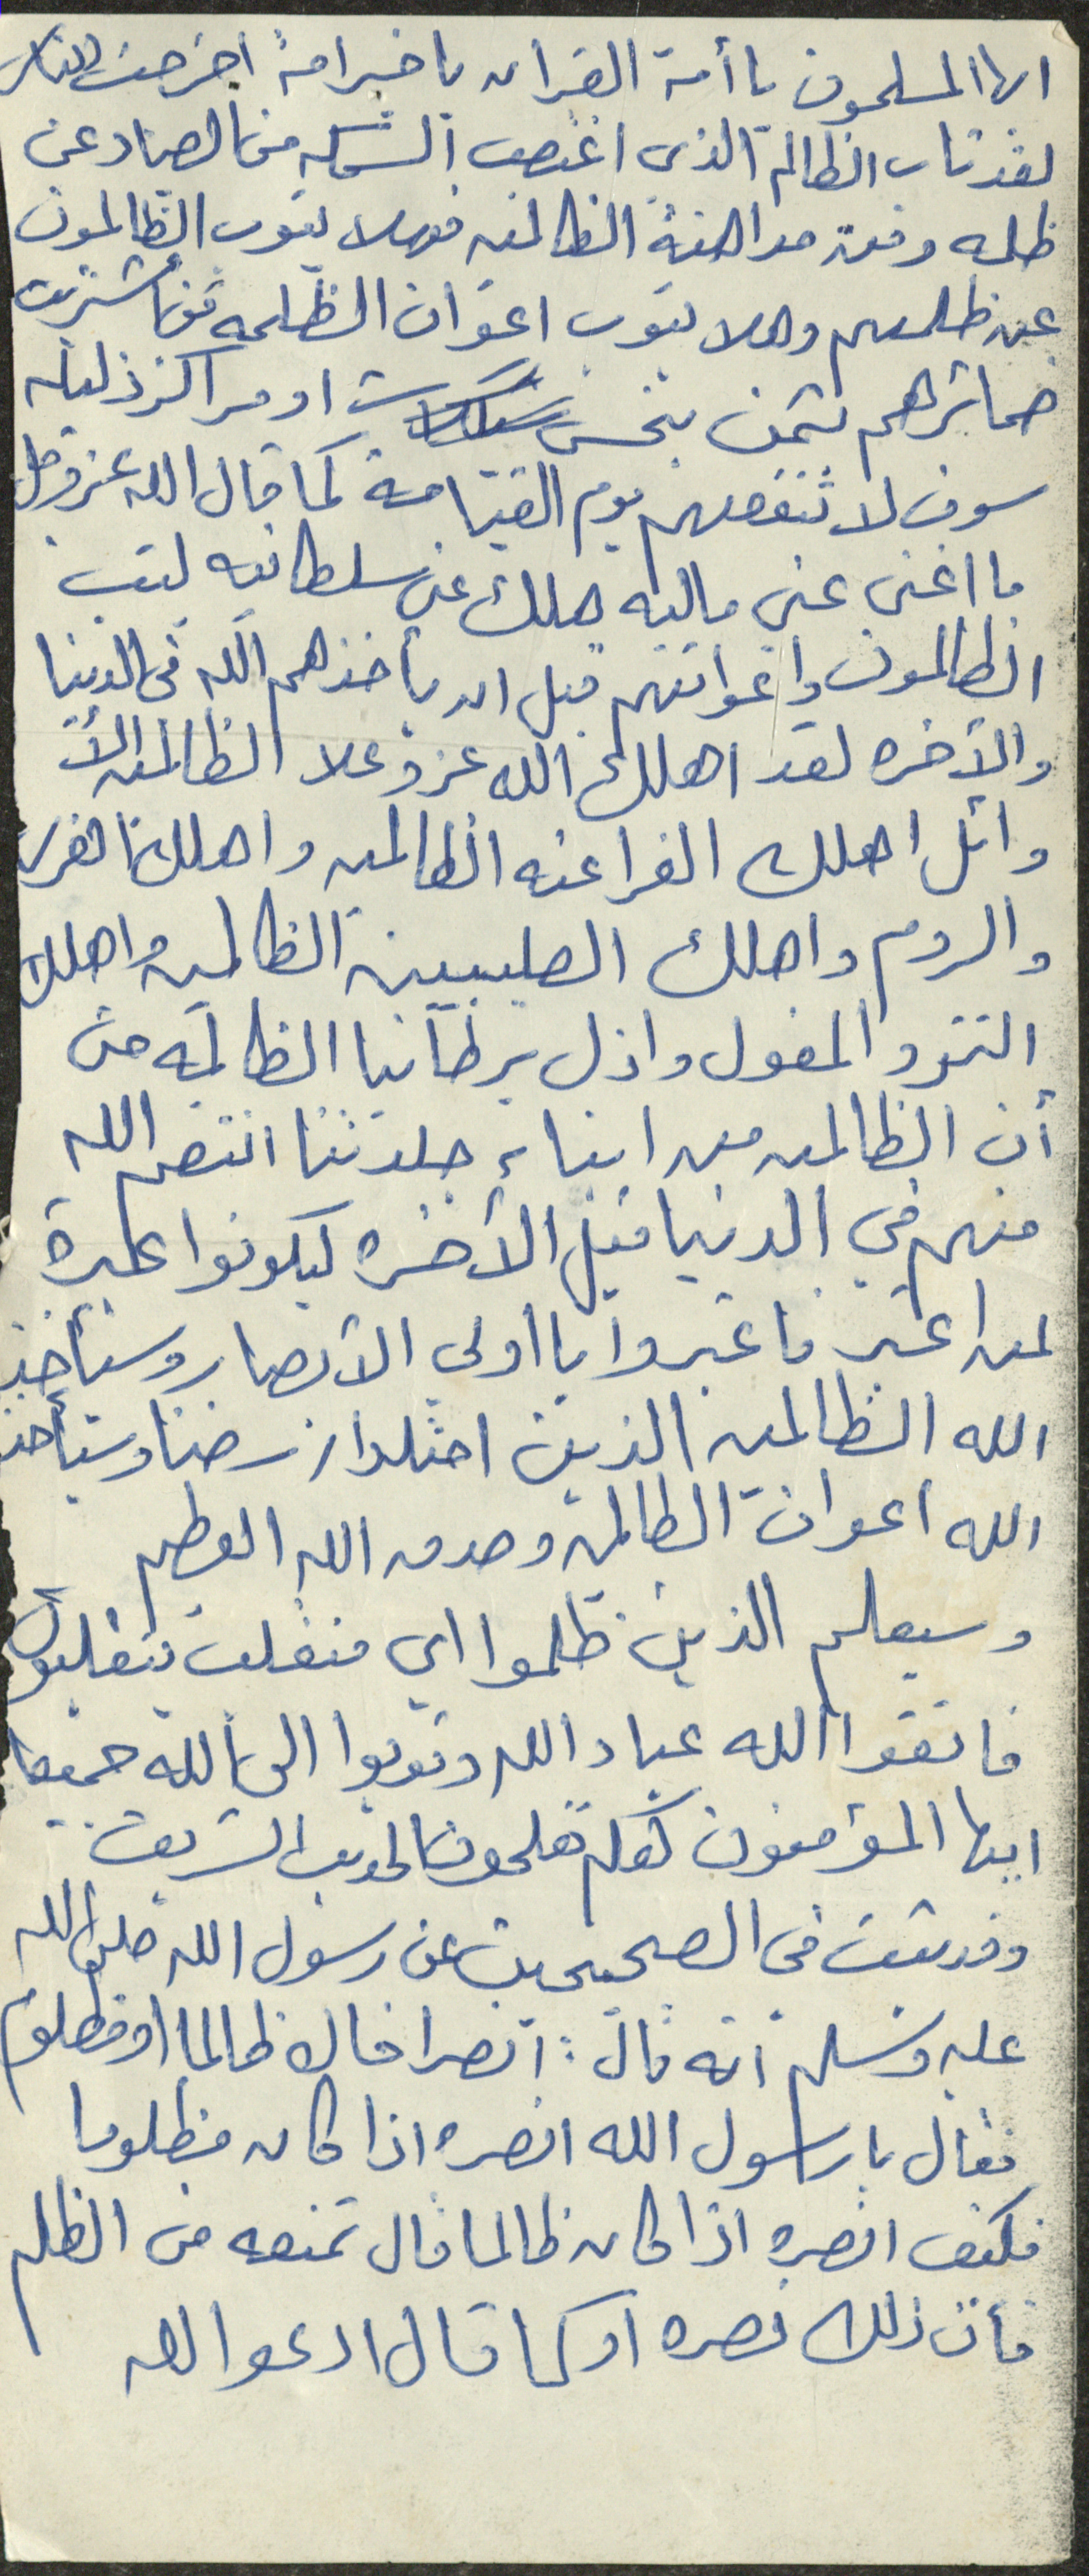 ايها المسلمون يا أمة القرآن يا خير امة اخرجت للناس
لقد تاب الظالم الذى اغتصب السمكه من الصياد عن
ظلمه وفيه مداهنة الظالمين فهلا يتوب الظالمون
عن ظلمهم وهلا يتوب اعوان الظلمه ممن اشتريت
ضمائرهم بثمن بخس او مراكز ذليله
سوف لا تنفعهم يوم القيامة كما قال الله عز وجل
ما اغنى عنى ماليه هلك عنى سلطانيه ليتب
الظالمون واعوانهم قبل ان يأخذهم الله فى الدنيا
والآخره لقد اهلك الله عز وعلا الظالمين الأ
وائل اهلك الفراعنه الظالمين واهلك الفرس
والروم واهلك الصليبيين الظالمين واهلك
التتر والمغول واذل بريطانيا الظالمه حتى
أن الظالمين من ابناء جلدتنا انتقم الله
منهم في الدنيا قبل الآخره ليكونوا عبرة
لمن اعتبر فاعتبروا يا أولي الأبصار وسيأخذ
الله الظالمين الذين احتلوا ارضنا وسيأخذ
الله اعوان الظالمين وصدق الله العظيم
وسيعلم الذين ظلموا اي منقلب ينقلبون
فاتقوا الله عباد الله وتوبوا الى الله جميعا
ايها المؤمنون لعلكم تفلحون الحديث الشريف
وقد ثبت فى الصحيحين عن رسول الله صلى الله
عليه وسلم أنه قال: انصر اخاك ظالما او مظلوم
فقال يا رسول الله انصره اذا كان مظلوما
فكيف انصره اذا كان ظالما قال تمنعه من الظلم
فأن ذلك نصره او كما قال ادعو الله